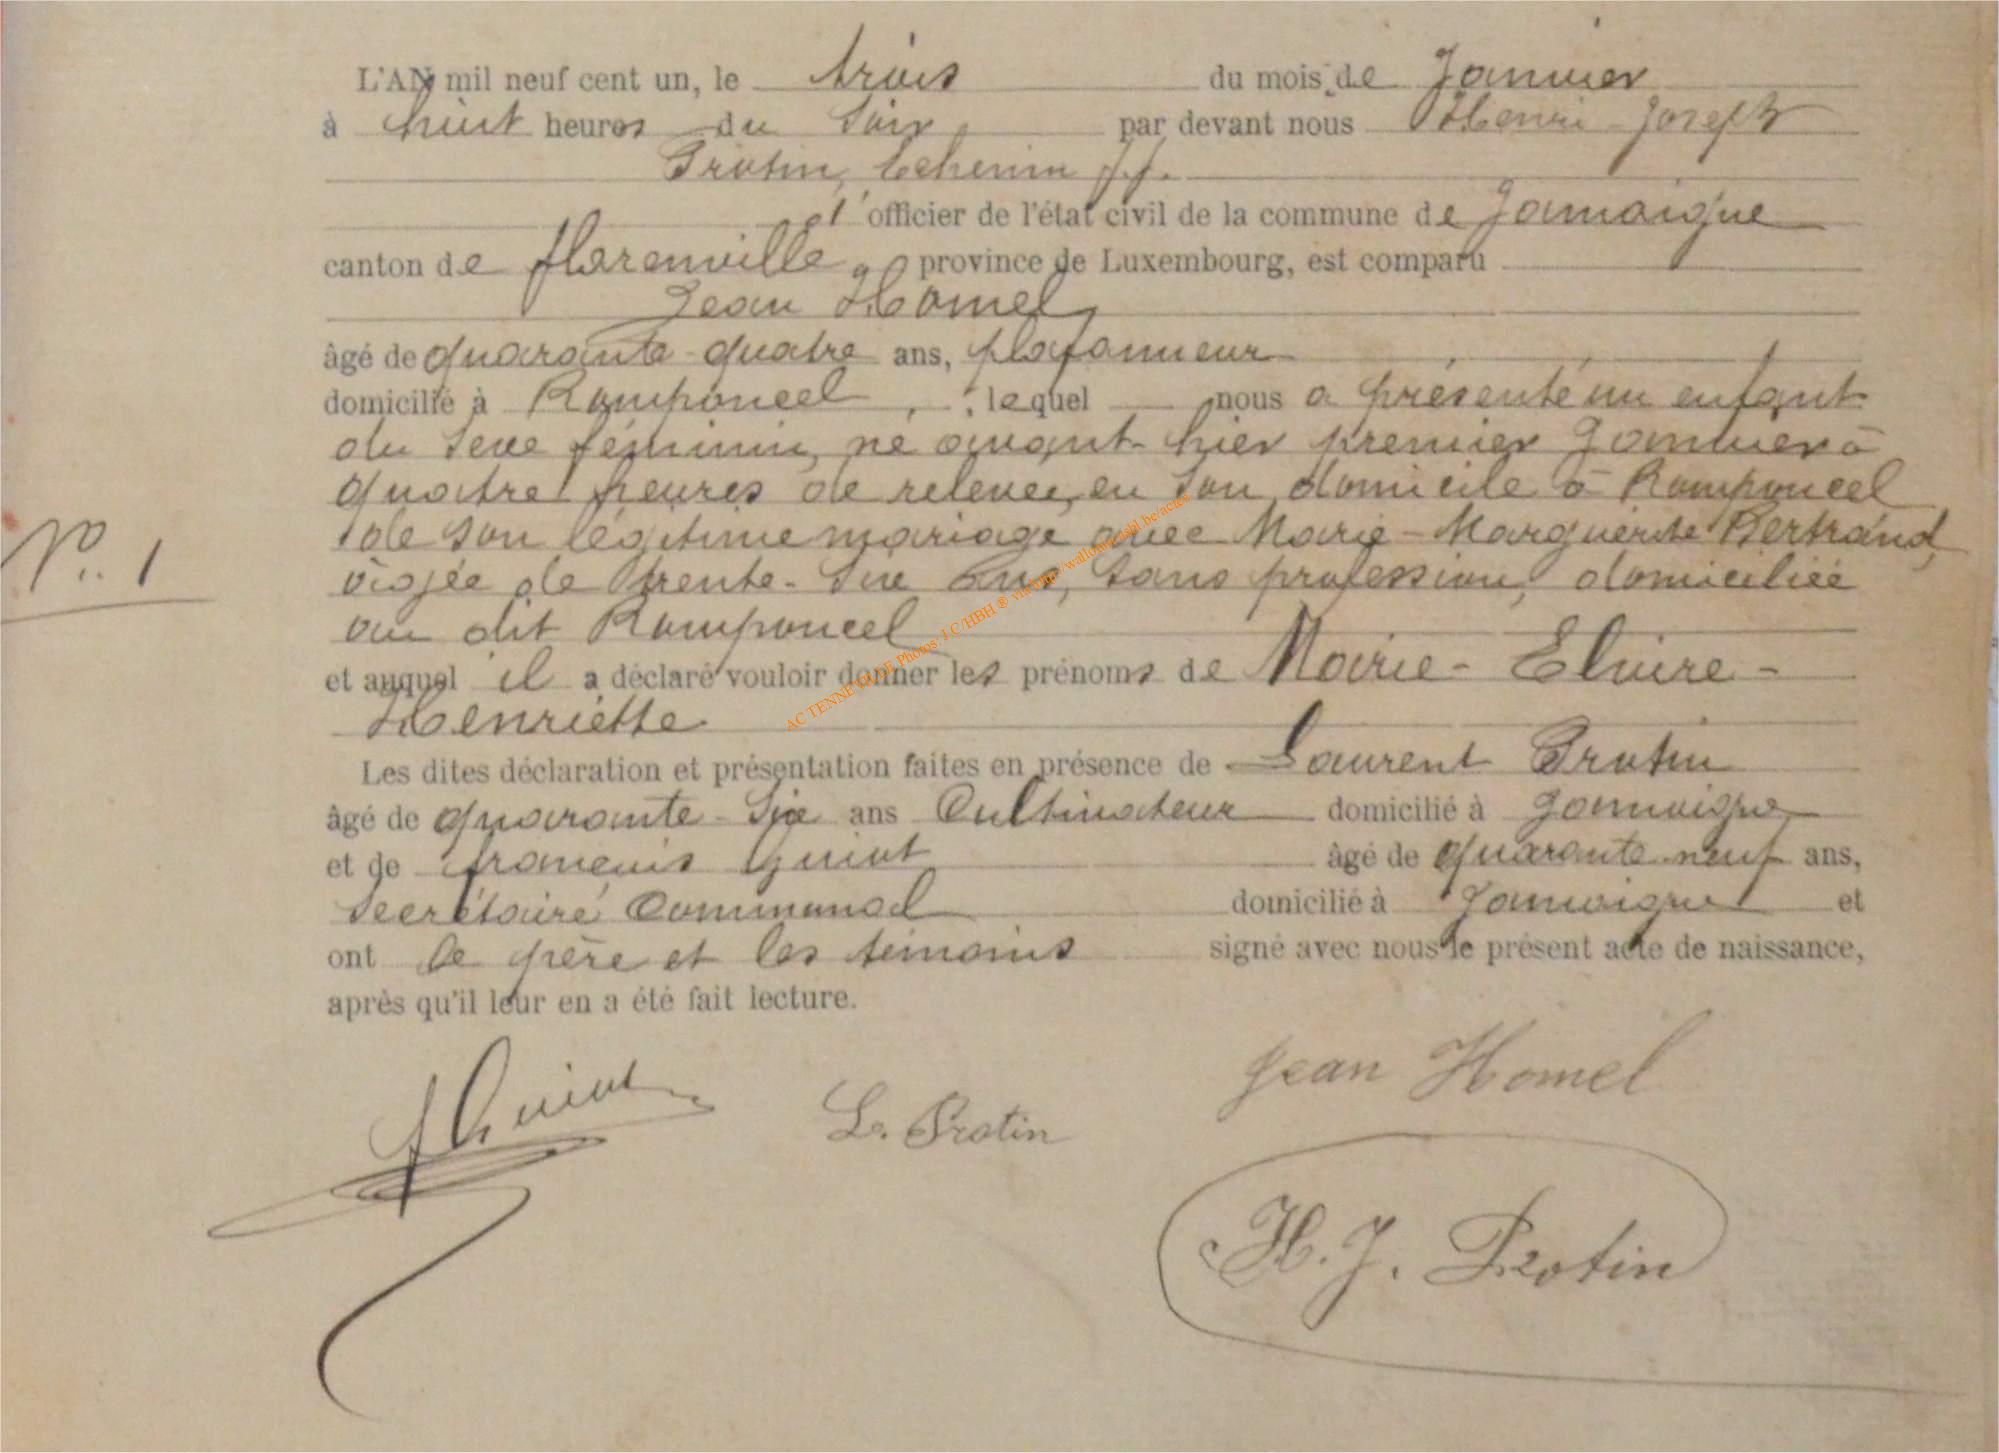 L'AN mil neuf cent un, le trois du mois de Janvier
à huit heures du Soir, par devant nous Henri-Joseph
Protin, Echevin f.f.
d'officier de l'état civil de la commune de Jamoigne
canton de florenville, province de Luxembourg, est comparu
Jean Homel,
âgé de quarante-quatre ans, plafonneur
domicilié à Romponcel, lequel nous a présenté un enfant
du sexe féminin, né avant-hier premier Janvier à
quatre heures de relevée, en son domicile à Romponcel
de son légitime mariage avec Marie-Marguerite Bertrand,
âgée de trente-six ans, sans profession, domiciliée
au dit Romponcel
N°. 1
et auquel il a déclaré vouloir donner les prénoms de Marie-Elvire-
Henriette
Les dites déclaration et présentation faites en présence de Laurent Protin
âgé de quarante-six ans Cultivateur domicilié à Jamoigne
et de françois Guiot âgé de quarante neuf ans,
Secrétaire Communal domicilié à Jamoigne et
ont le père et les témoins signé avec nous le présent acte de naissance,
après qu'il leur en a été fait lecture.
Jean Homel
f Guiot
L. Protin
H. J. Protin
AC TENNEVILLE Photos: J.C/HBH ® via http://wallonia-asbl.be/actes